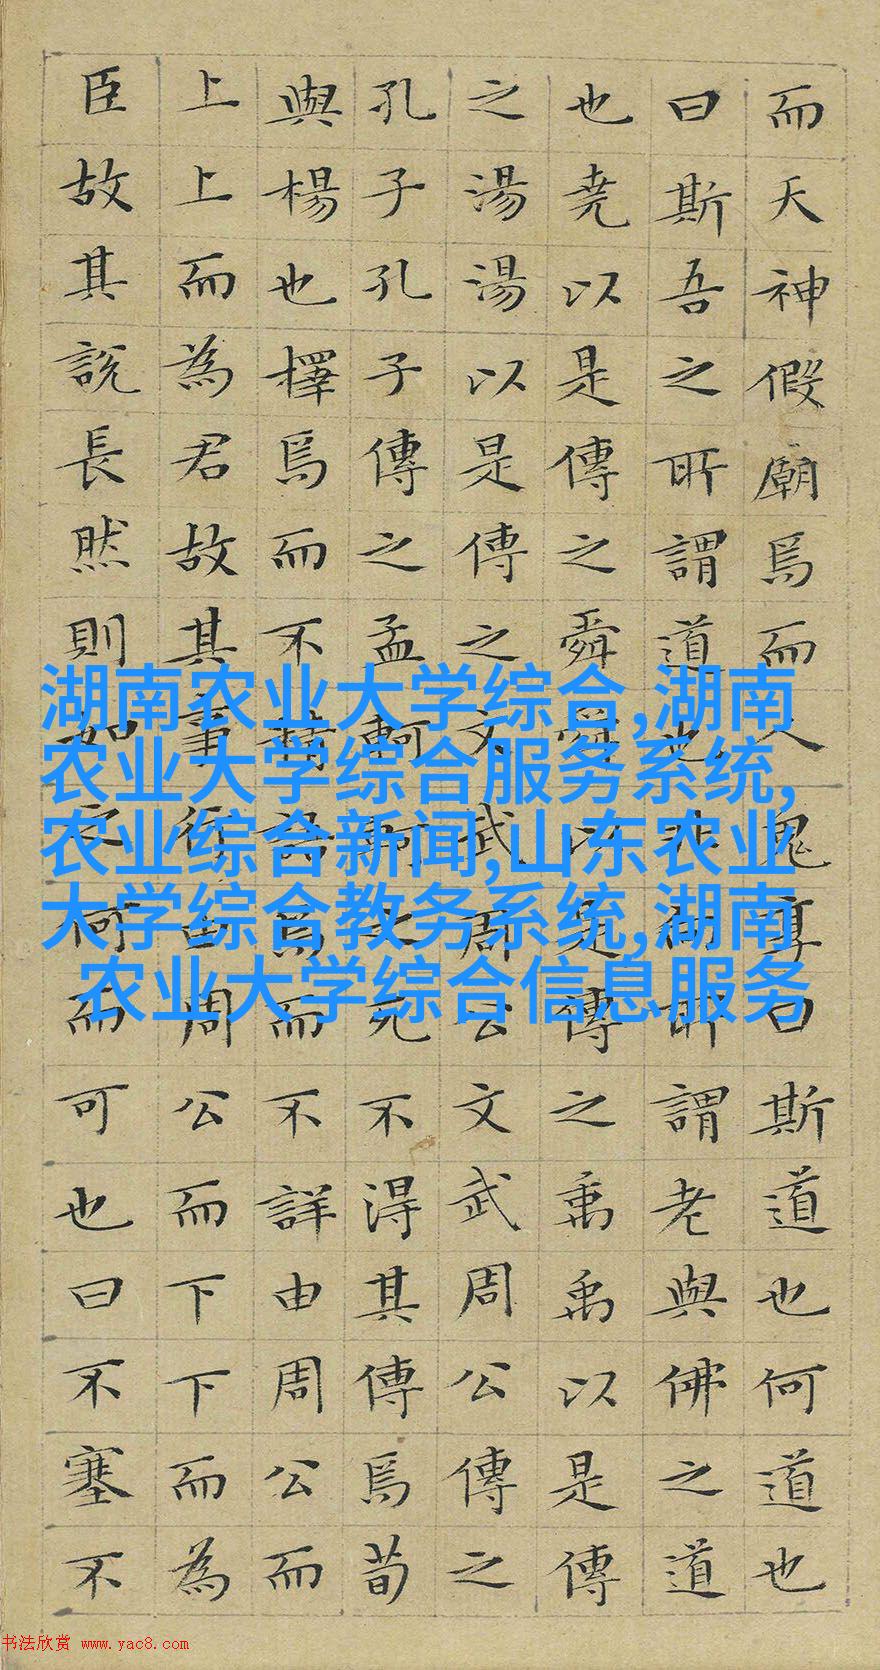 而天神假廟焉而人鬼享曰斯道也何道也
曰斯吾之所謂道也非向所謂老與佛之道
也堯以是傳之舜舜以是傳之禹禹以是傳
之湯湯以是傳之文武周公文武周公傳之
孔子孔子傳之孟軻軻之死不得其傳焉荀
與楊也擇焉而不精語焉而不詳由周公而
上上而為君故其事行由周公而下下而為
臣故其說長然則如之何而可也曰不塞不
湖南农业大学综合,湖南
农业大学综合服务系统,
农业综合新闻,山东农业
大学综合教务系统,湖南
农业大学综合信息服务
书法欣赏 www.yac8.com